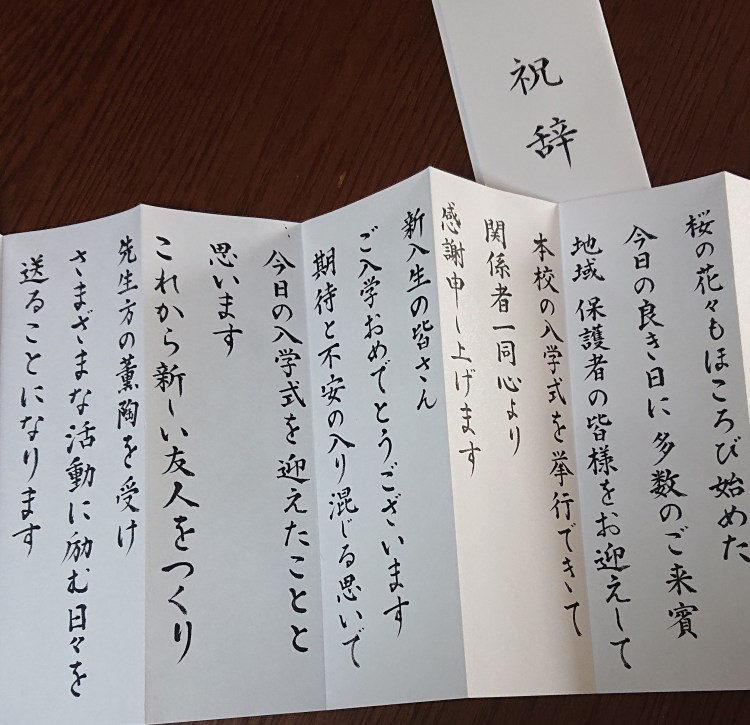 祝辞
桜の花々もほころび始めた
今日の良き日に多数のご来賓
地域 保護者の皆様をお迎えして
本校の入学式を挙行できて
関係者一同心より
感謝申し上げます
新入生の皆さん
ご入学おめでとうございます
期待と不安の入り混じる思いで
今日の入学式を迎えたことと
思います
これから新しい友人をつくり
先生方の薫陶を受け
さまざまな活動に励む日々を
送ることになります